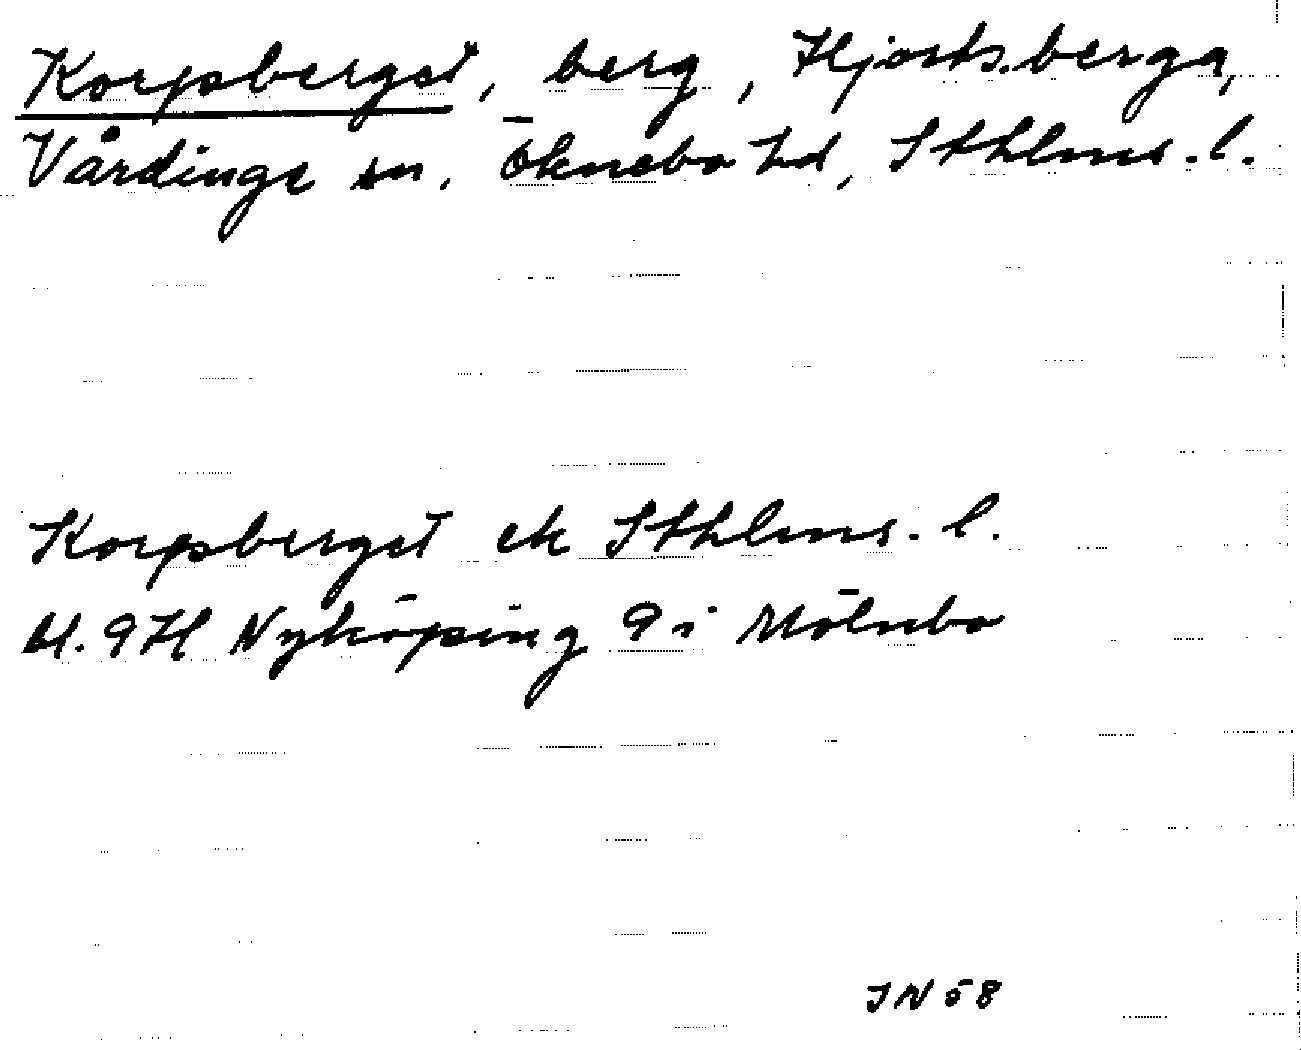 Korpsberget, berg, Hjortsberga,
Vårdinge sn, Öknebo hd, Sthlms. l.
Korpsberget ek Sthlms. l.
bl. 9H Nyköping 9 i Mölnbo
JN 58